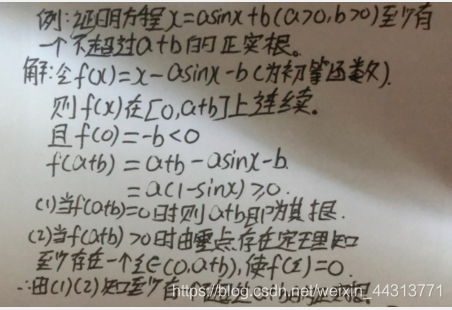 例:证明方程x=asinx+b(a>0,b>0)至少有
一个不超过a+b的正实根。
解:令f(x)=x-asinx-b(为初等函数).
则f(x)在[0,a+b]上连续。
且f(0)=-b<0
f(a+b)=a+b-asinx-b.
=a(1-sinx)≥0.
(1)当f(a+b)=0时则a+b即为其根.
(2)当f(a+b)>0时由零点存在定理知
至少存在一个ξ∈(0,a+b),使f(ξ)=0.
∴由(1)(2)知至少有
https://blog.csdn.net/weixin_44313771